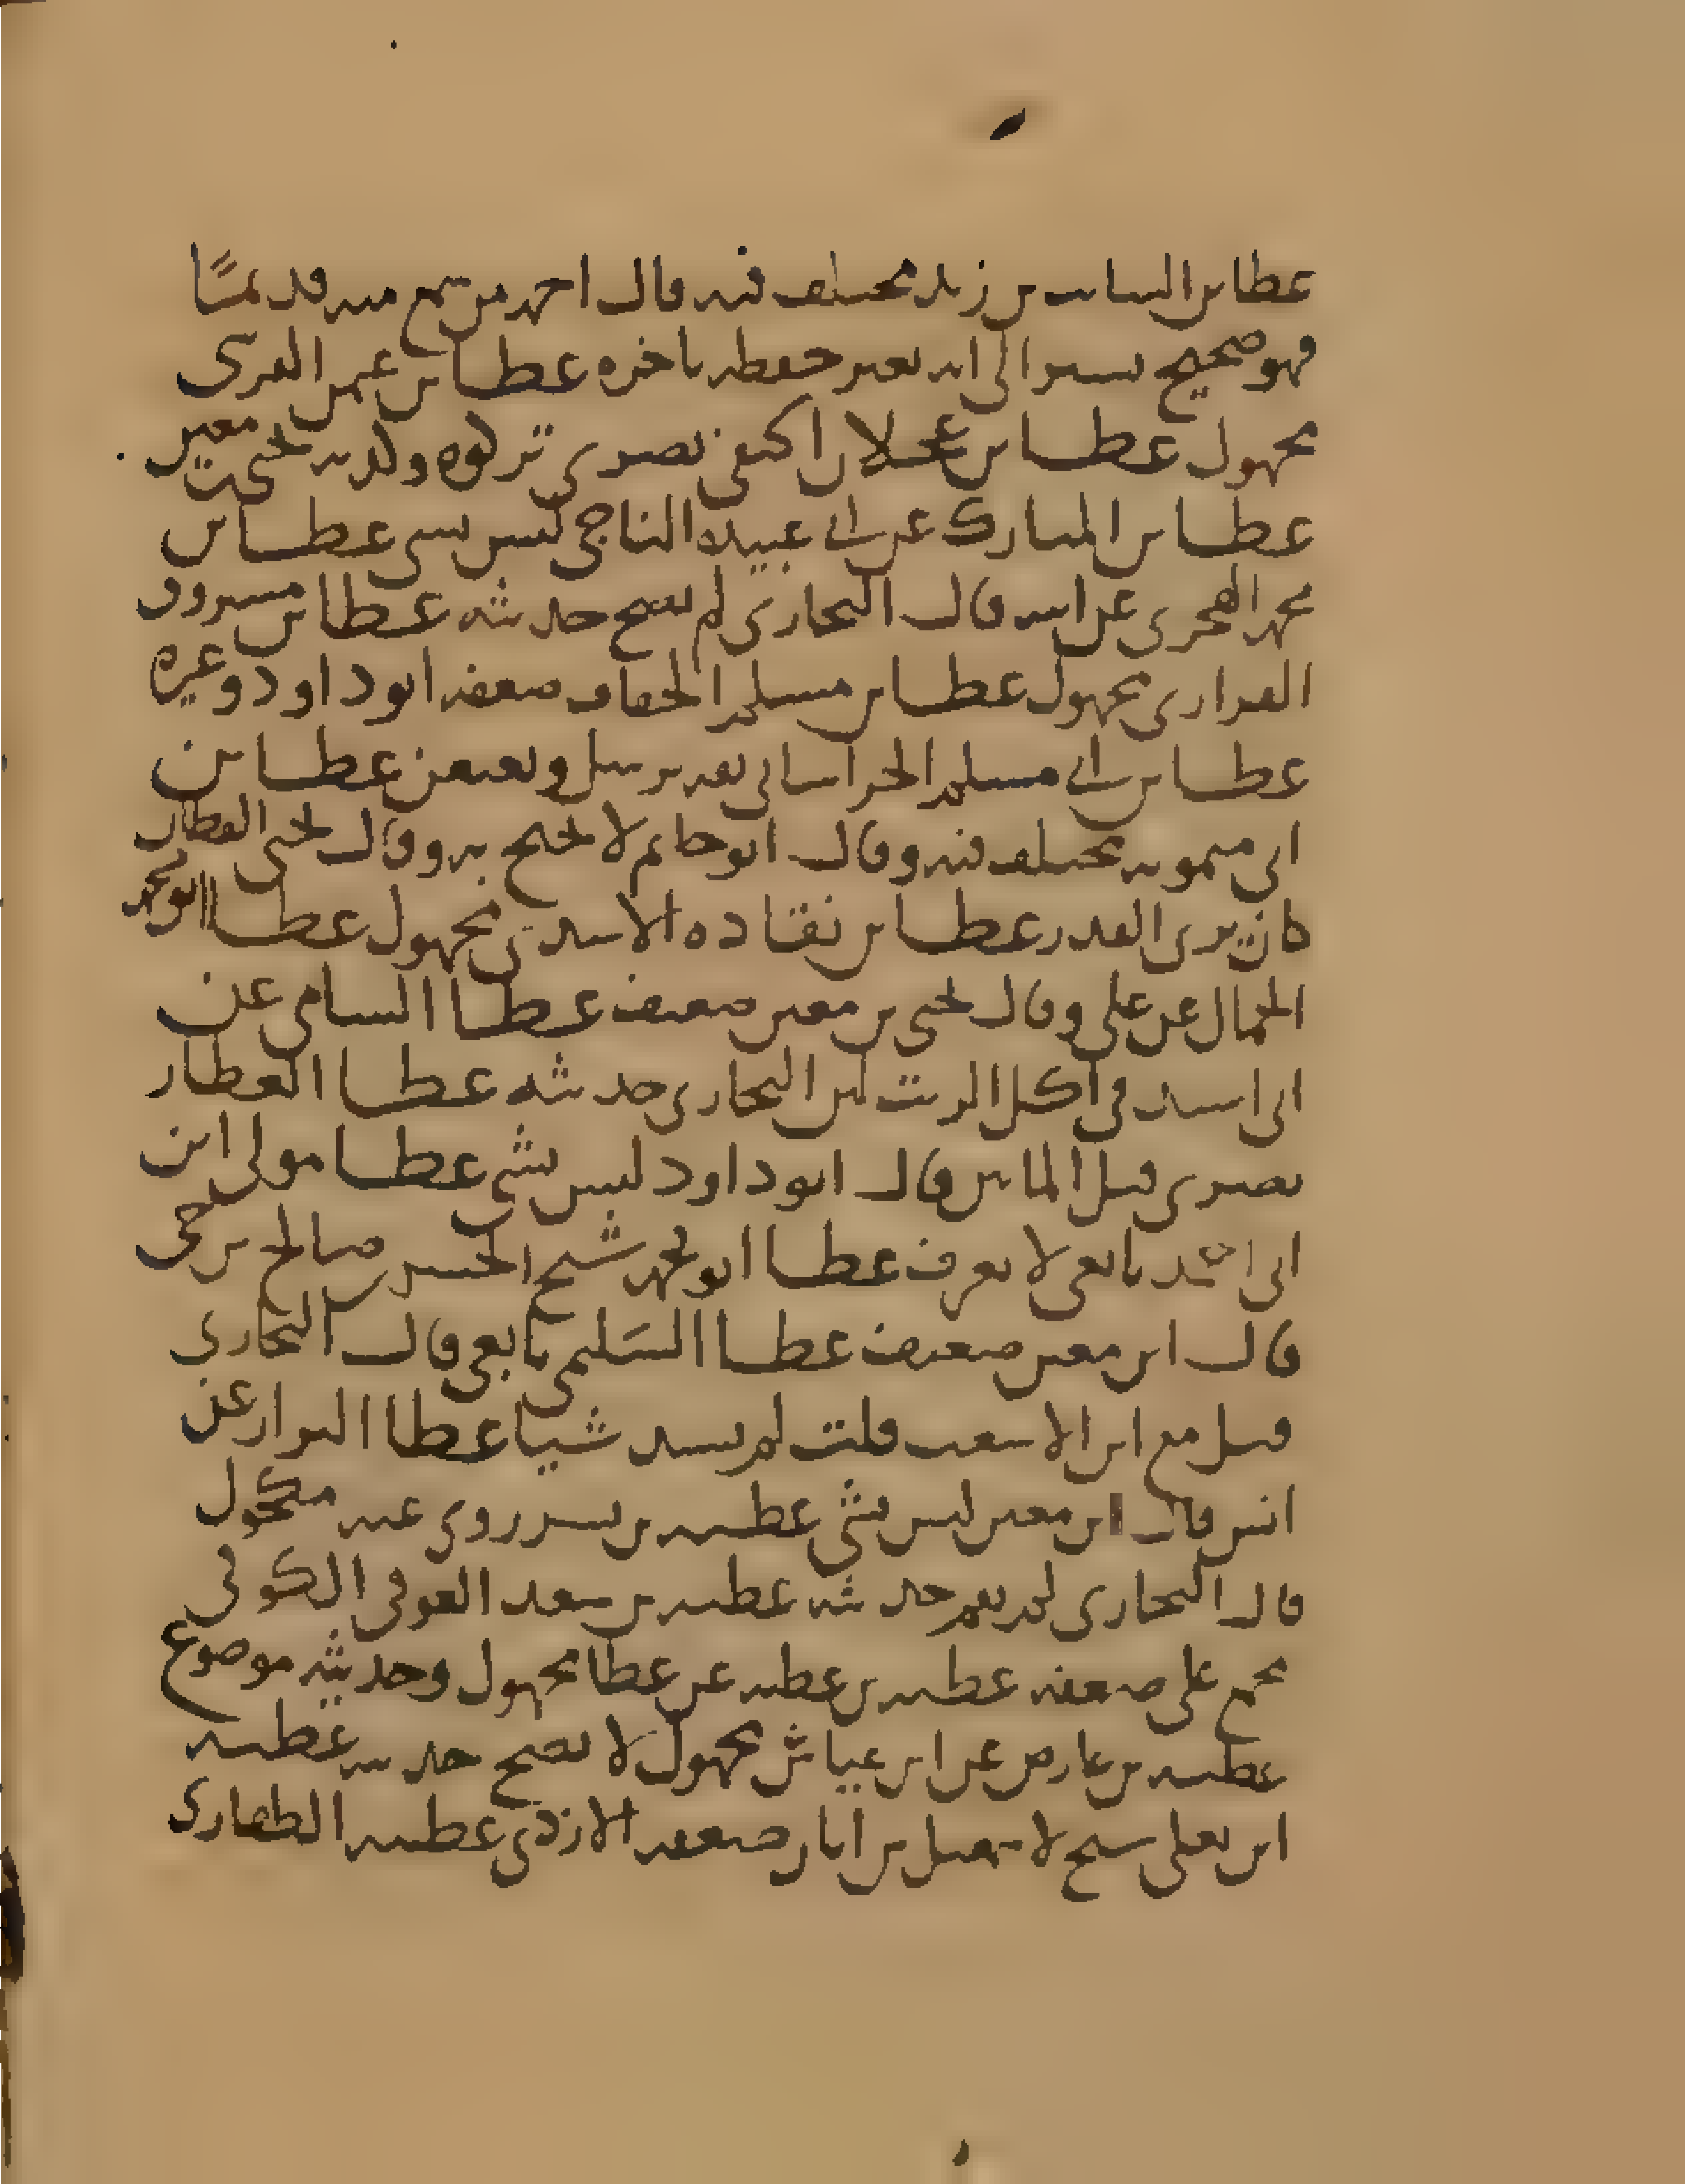 عطا بن السايب بن زيد مختلف فيه قال احمد من سمع منه قديمًا
فهو صحيح يشيروا الى انه تغير حفظه باخره عطا بن عمر القرشى
مجهول عطا بن عجلان الحنفي بصرى تركوه وكذبه يحيى بن معين
عطا بن المبارك عن ابى عبيده الناجي ليس بشى عطا بن
محمد الهجرى عن ابيه قال البخارى لم يصح حديثه عطا بن مسروق
الفزارى مجهول عطا بن مسلم الخفاف ضعفه ابو داود وغيره
عطا بن ابى مسلم الخراساني ثقه يرسل ويعنعن عطا بن
ابى ميمونه مختلف فيه وقال ابو حاتم لا يحتج به وقال يحيى القطان
كان يرى القدر عطا بن نقاده الاسدى مجهول عطا ابو محمد
الحمال عن على وقال يحيى بن معين ضعيف عطا الشامي عن
ابى اسيد فى اكل الزيت لين البخارى حديثه عطا العطار
بصرى قبل المايتين قال ابو داود ليس بشى عطا مولى ابن
ابى احمد تابعى لا يعرف عطا ابو محمد شيخ الحسن بن صالح بن حى
قال ابن معين ضعيف عطا السَليمى تابعى قال البخارى
قتل مع ابن الاشعث قلت لم يسند شيا عطا البزار عن
انس قال ابن معين ليس بشى عطيه بن بسر روى عنه مكحول
قال البخارى لم يقم حديثه عطيه بن سعد العوفى الكوفى
مجمع على ضعفه عطيه بن عطيه عن عطا مجهول وحديثه موضوع
عطيه بن عارض عن ابن عياش مجهول لا يصح حديثه عطيه
ابن يعلى شيخ لاسمعيل بن ابان ضعفه الازدى عطيه الطفاوى